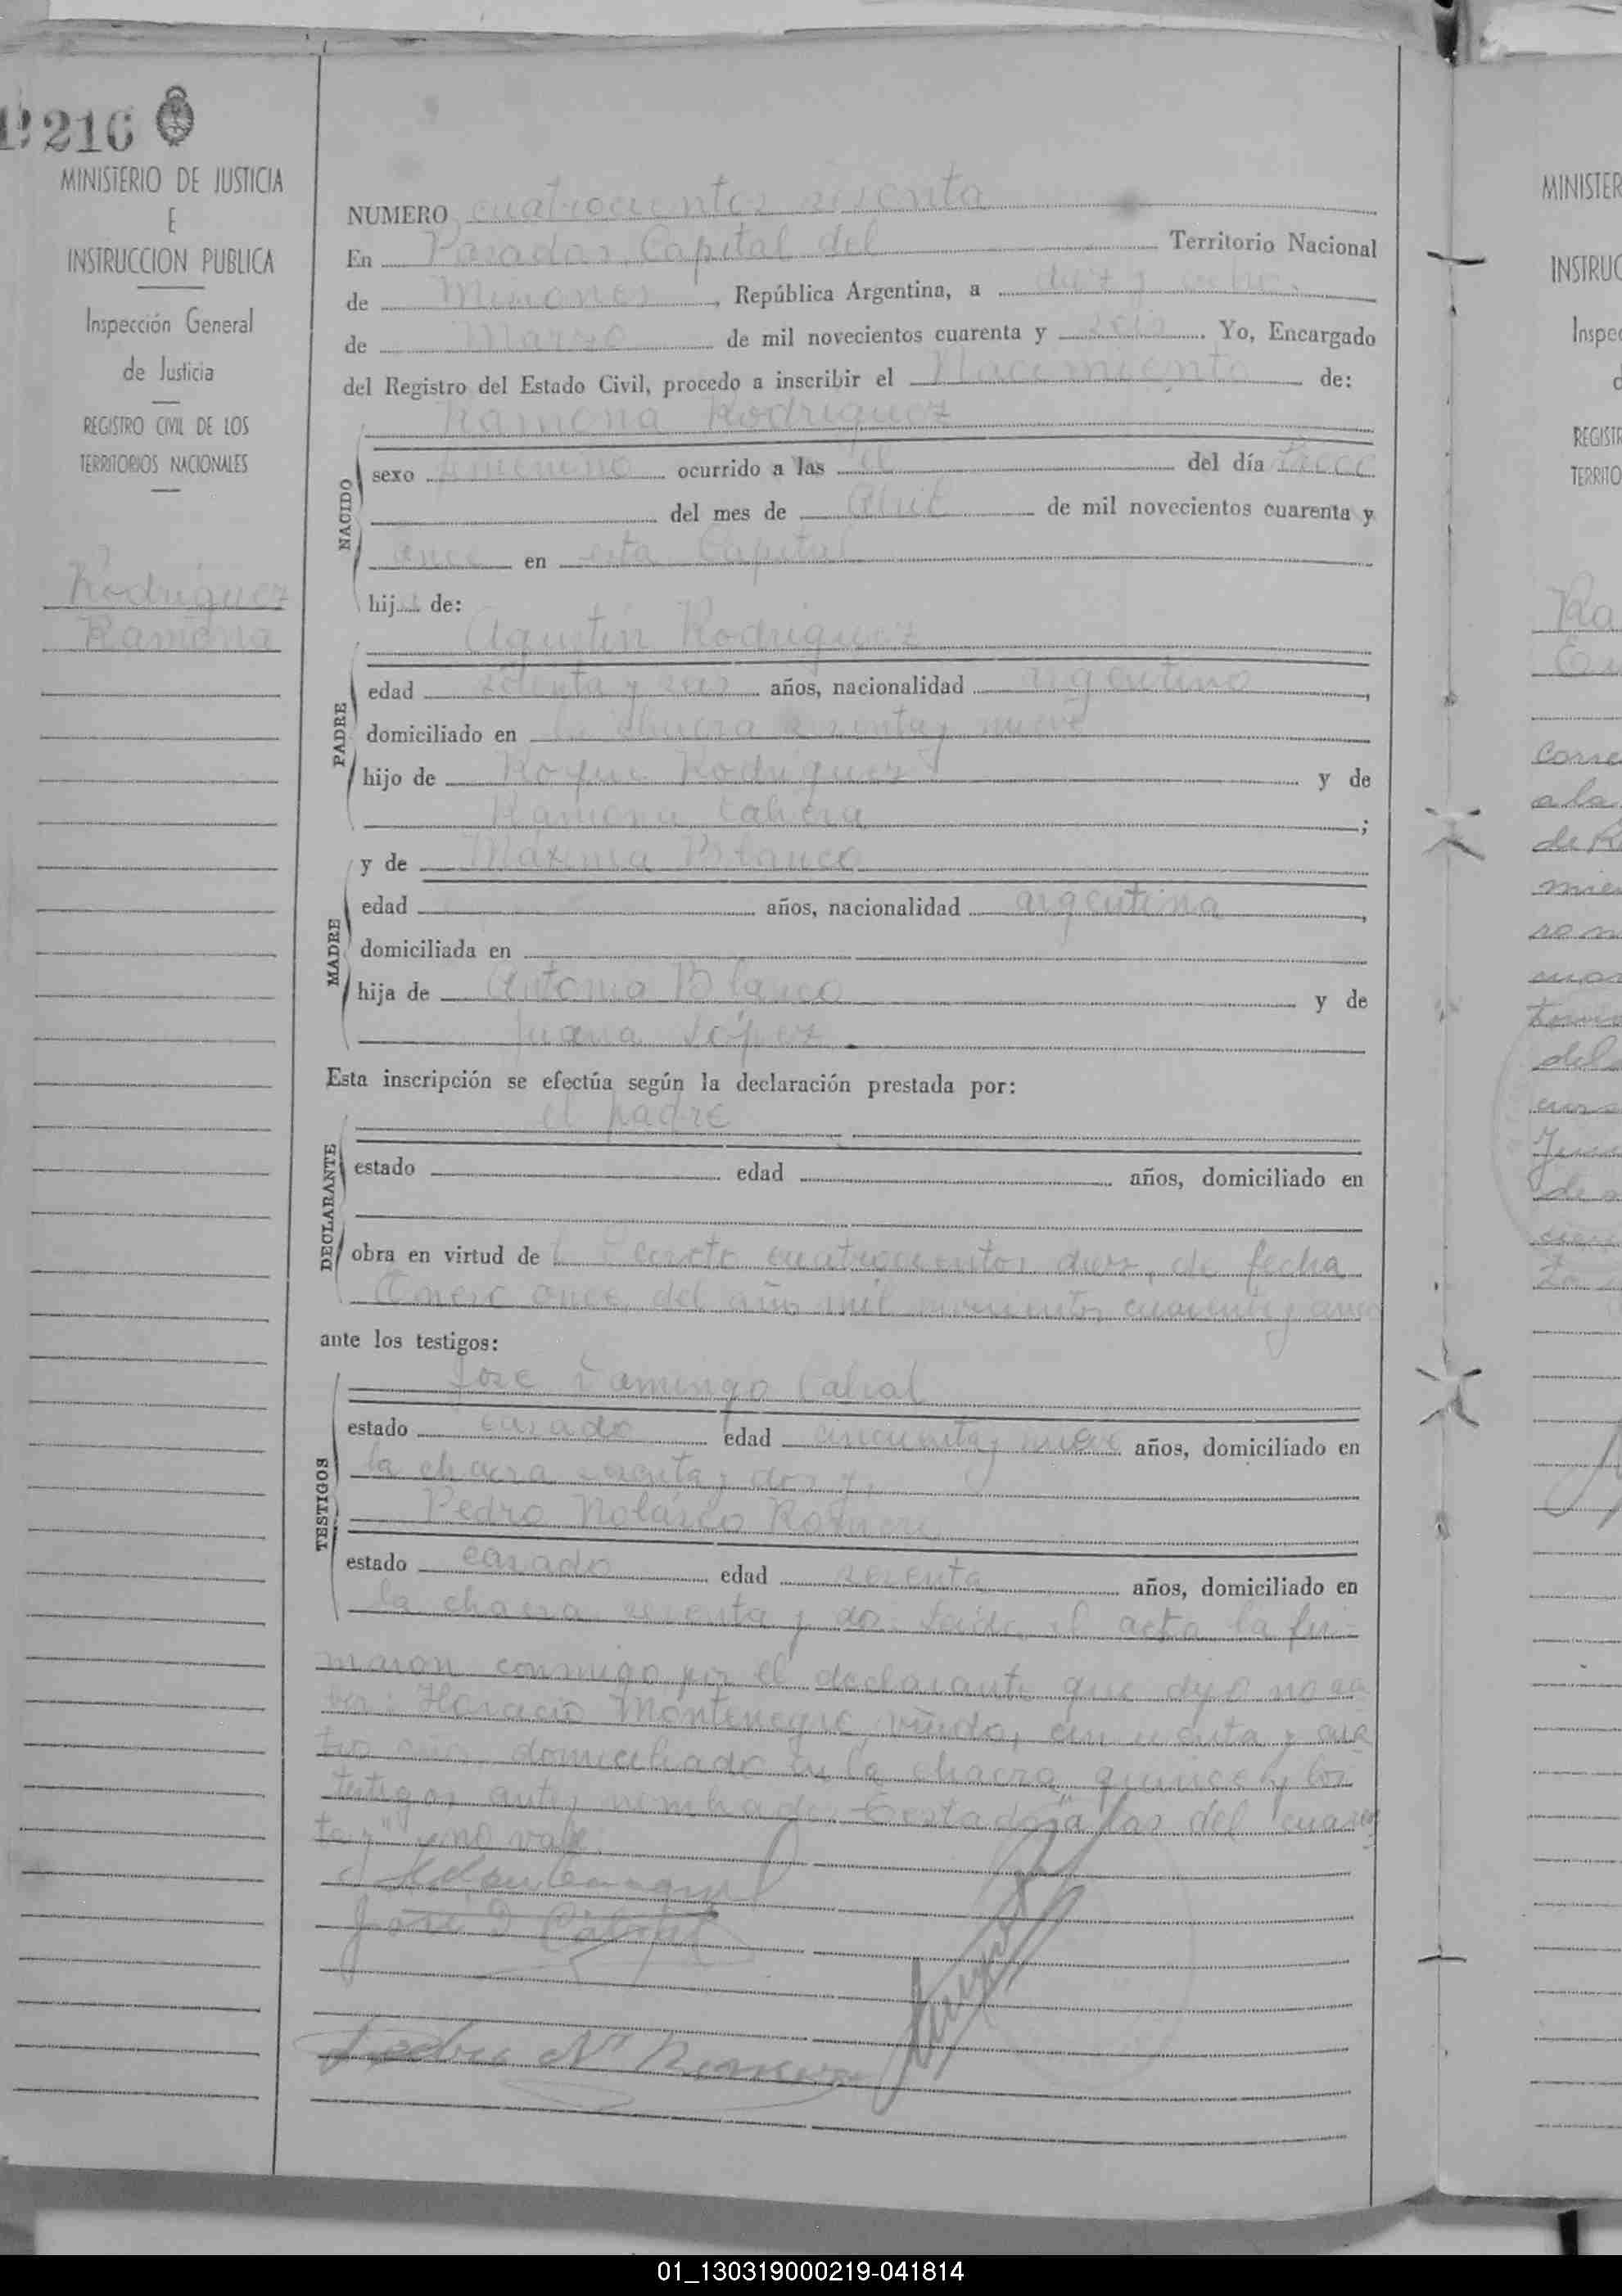 216
MINISTERIO DE JUSTICIA
E
INSTRUCCION PUBLICA
Inspección General
de Justicia
REGISTRO CIVIL DE LOS
TERRITORIOS NACIONALES
Rodriguez
Ramona
NUMERO cuatrocientos sesenta
En Posadas, Capital del Territorio Nacional
de Misiones, República Argentina, a diez y ocho
de Marzo de mil novecientos cuarenta y seis. Yo, Encargado
del Registro del Estado Civil, procedo a inscribir el Nacimiento de:
Ramona Rodriguez
NACIDO
sexo femenino ocurrido a las el del día trece
del mes de Abril de mil novecientos cuarenta y
once en esta Capital
hij de:
Agustin Rodriguez
PADRE
edad y seis años, nacionalidad argentino,
domiciliado en la chacra y nueve
hijo de Roque Rodriguez y de
Ramona Cabrera;
y de Maxima Blanco
MADRE
edad años, nacionalidad argentina,
domiciliada en
hija de Antonio Blanco y de
Juana López.
Esta inscripción se efectúa según la declaración prestada por:
el padre
DECLARANTE
estado edad años, domiciliado en
obra en virtud de Decreto cuatrocientos diez, de fecha
Enero once del año mil novecientos cuarenta y
ante los testigos:
José Domingo Cabral
TESTIGOS
estado casado edad cincuenta y nueve años, domiciliado en
la chacra sesenta y dos y
Pedro Nolasco Romero
estado casado edad sesenta años, domiciliado en
la chacra sesenta y dos. Leida el acta la fir-
maron conmigo por el declarante que dijo no sa
ber: Horacio Montenegro, viudo, cincuenta y cua
tro años domiciliado en la chacra quince y los
testigos antes nombrados. Testado: "a las del cuaren
ta y" no vale
José D Cabral
Pedro N. Romero
MINISTER
INSTRUC
Inspec
REGISTR
TERRITO
01_130319000219-041814